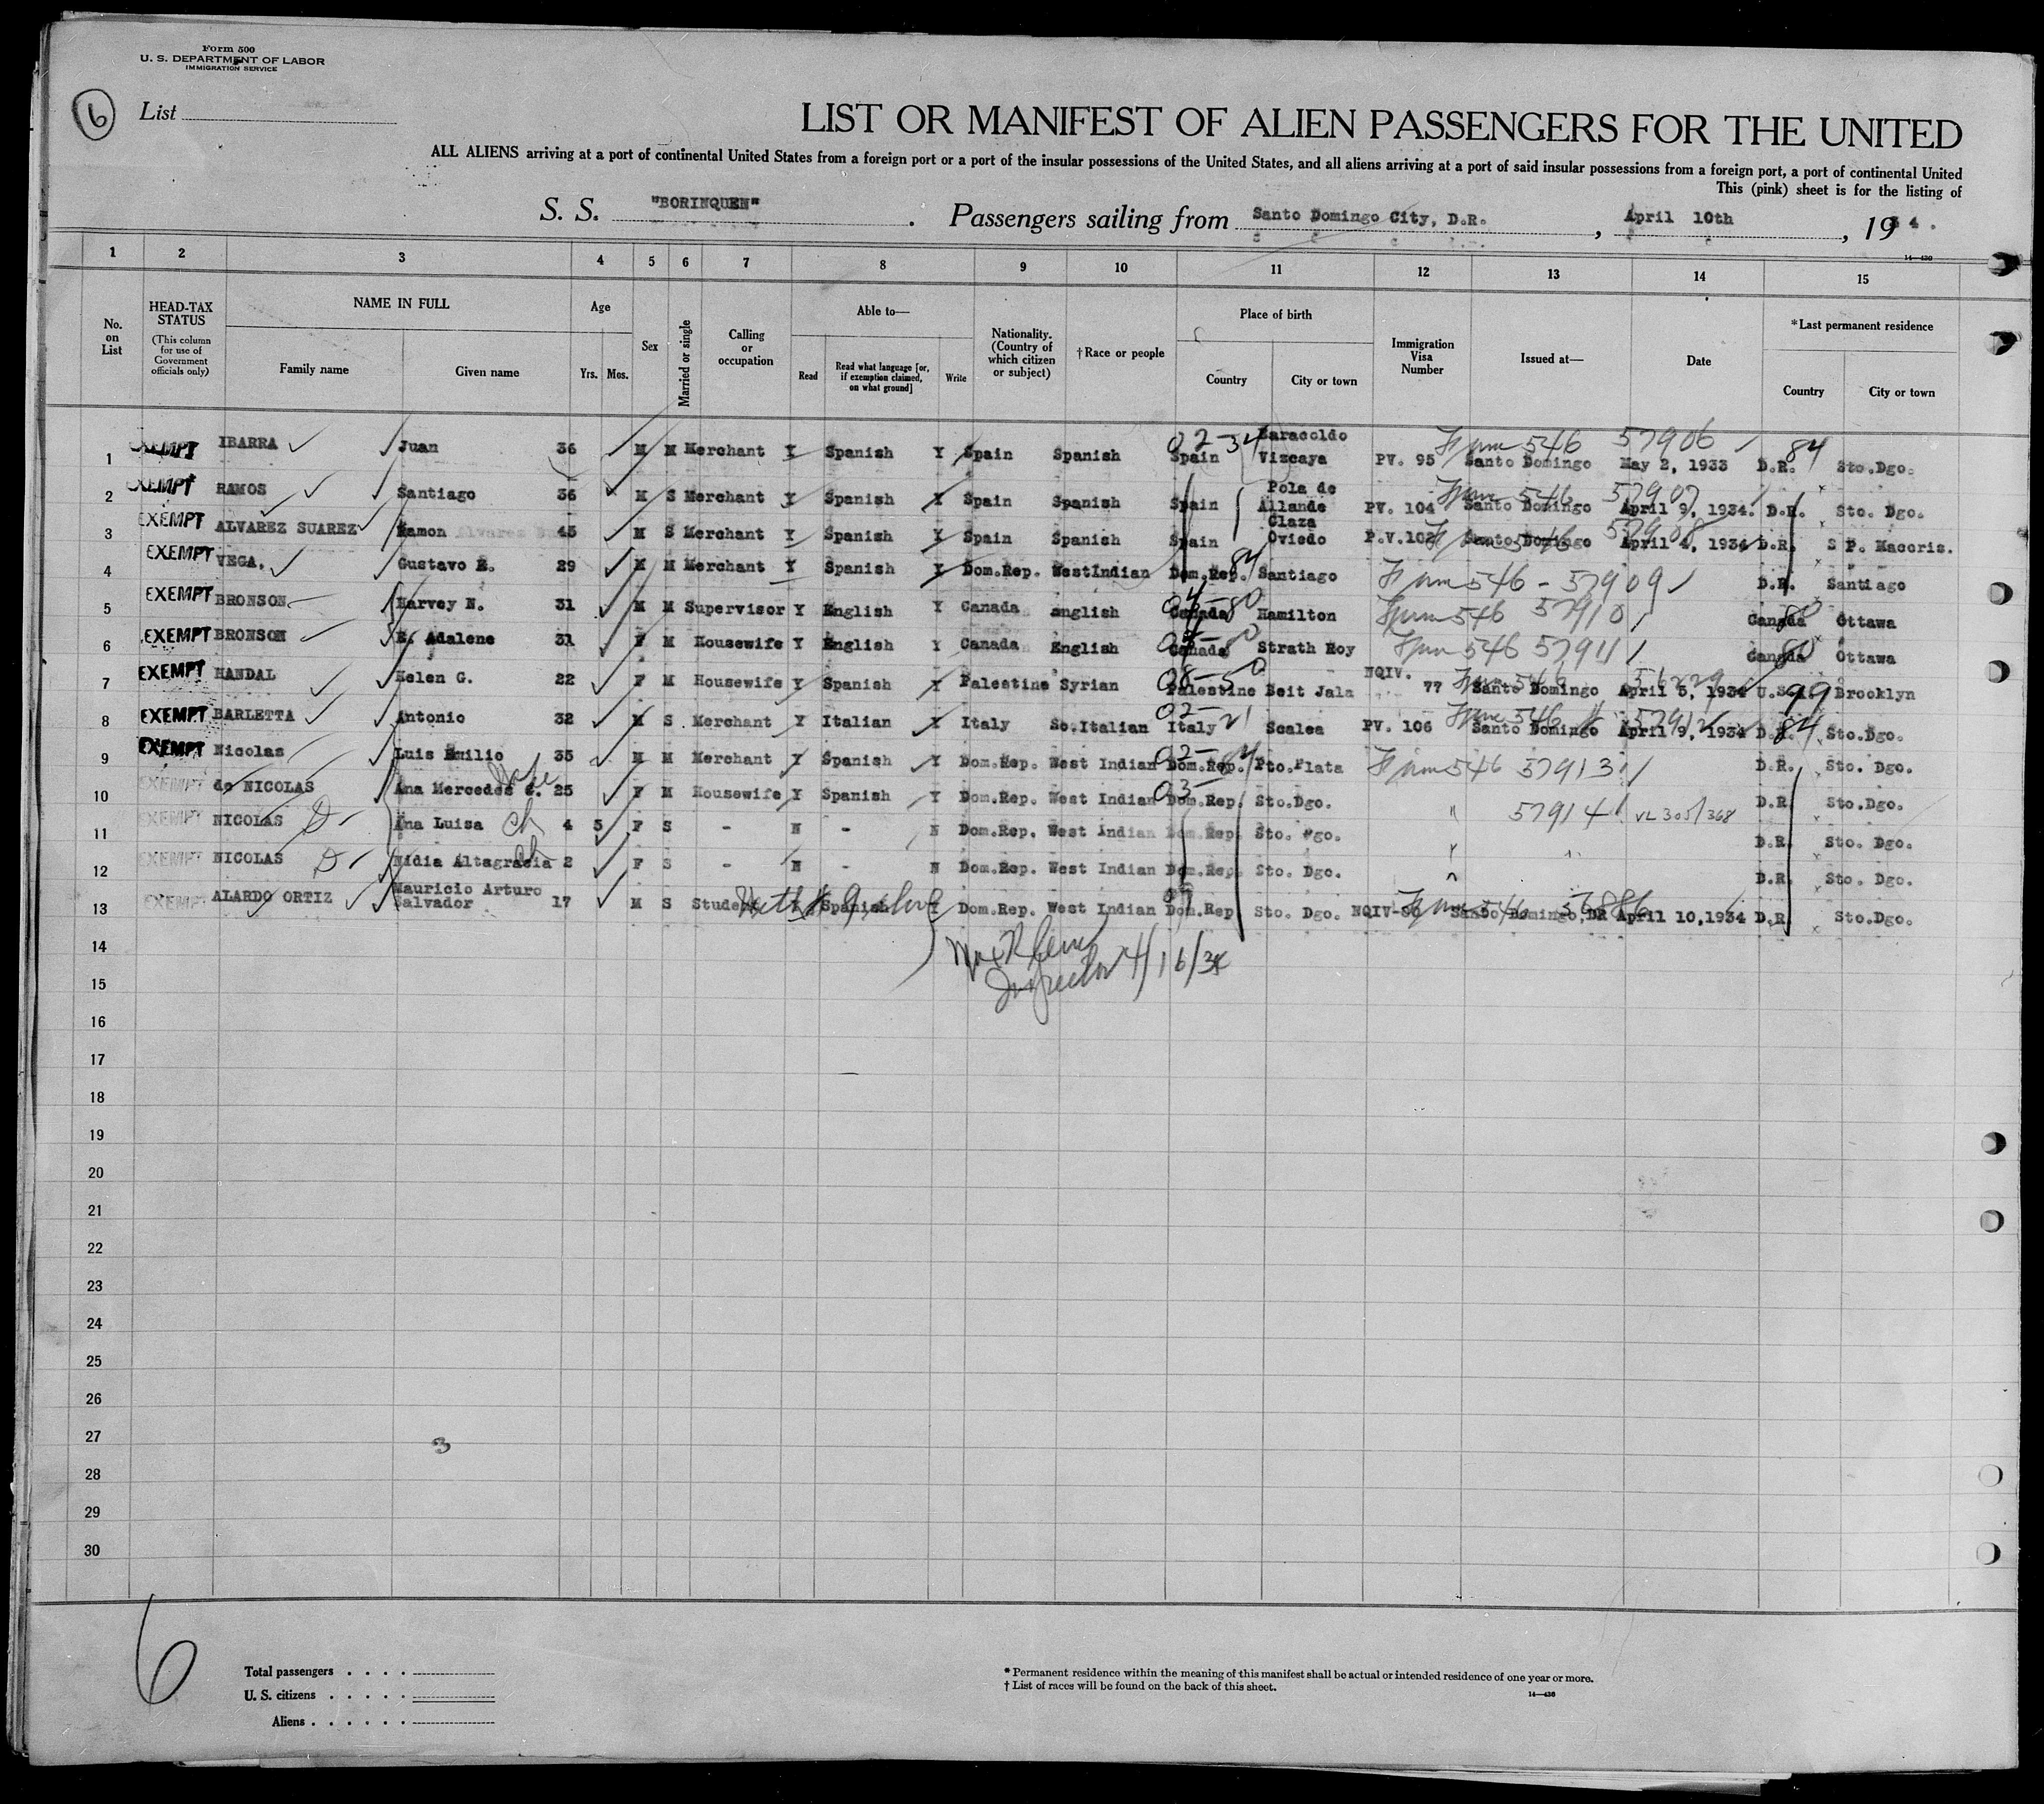 Form 500
U. S. DEPARTMENT OF LABOR
IMMIGRATION SERVICE
6
List
LIST OR MANIFEST OF ALIEN PASSENGERS FOR THE UNITED
ALL ALIENS arriving at a port of continental United States from a foreign port or a port of the insular possessions of the United States, and all aliens arriving at a port of said insular possessions from a foreign port, a port of continental United
This (pink) sheet is for the listing of
S. S. "BORINQUEN". Passengers sailing from Santo Domingo City, D.R., April 10th, 1934.
14—430
1 2 3 4 5 6 7 8 9 10 11 12 13 14 15
No. on List
HEAD-TAX STATUS (This column for use of Government officials only)
NAME IN FULL Family name Given name
Age Yrs. Mos.
Sex
Married or single
Calling or occupation
Able to— Read Read what language [or, if exemption claimed, on what ground] Write
Nationality. (Country of which citizen or subject)
†Race or people
Place of birth Country City or town
Immigration Visa Number
Issued at—
Date
*Last permanent residence Country City or town
1 EXEMPT IBARRA Juan 36 M M Merchant Y Spanish Y Spain Spanish 02-34 Spain Baracoldo Vizcaya PV. 95 546 57906 Santo Domingo May 2, 1933 D.R. 84 Sto.Dgo.
2 EXEMPT RAMOS Santiago 36 M S Merchant Y Spanish Y Spain Spanish Spain Pola de Allande PV. 104 546 57907 Santo Domingo April 9, 1934. D.R. Sto. Dgo.
3 EXEMPT ALVAREZ SUAREZ Ramon 45 M S Merchant Y Spanish Y Spain Spanish Spain Claza Oviedo P.V.102 546 57908 Santo Domingo April 4, 1934 D.R. S P. Macoris.
4 EXEMPT VEGA, Gustavo E. 29 M M Merchant Y Spanish Y Dom.Rep. WestIndian Dom.Rep. 84 Santiago 546 - 57909 D.R. Santiago
5 EXEMPT BRONSON Harvey N. 31 M M Supervisor Y English Y Canada English Canada 04-80 Hamilton 546 57910 Canada 80 Ottawa
6 EXEMPT BRONSON E. Adalene 31 F M Housewife Y English Y Canada English Canada Strath Roy 546 57911 Canada 80 Ottawa
7 EXEMPT HANDAL Helen G. 22 F M Housewife Y Spanish Y Palestine Syrian 08-50 Palestine Beit Jala NQIV. 77 546 56229 Santo Domingo April 5, 1934 U.S. 99 Brooklyn
8 EXEMPT BARLETTA Antonio 32 M S Merchant Y Italian Y Italy So.Italian 02-21 Italy Scalea PV. 106 546 57912 Santo Domingo April 9, 1934 D.R. 84 Sto.Dgo.
9 EXEMPT Nicolas Luis Emilio 35 M M Merchant Y Spanish Y Dom.Rep. West Indian 02-84 Dom.Rep. Pto.Plata 546 57913 D.R. Sto. Dgo.
10 EXEMPT de NICOLAS Ana Mercedes C. 25 F M Housewife Y Spanish Y Dom.Rep. West Indian 03- Dom.Rep. Sto.Dgo. " 57914 VL 305/368 D.R. Sto.Dgo.
11 EXEMPT NICOLAS D Ana Luisa Ch 4 5 F S - N - N Dom.Rep. West Indian Dom.Rep. Sto. Dgo. " " D.R. Sto. Dgo.
12 EXEMPT NICOLAS D Nidia Altagracia Ch 2 F S - N - N Dom.Rep. West Indian Dom.Rep. Sto. Dgo. " D.R. Sto. Dgo.
13 EXEMPT ALARDO ORTIZ Mauricio Arturo Salvador 17 M S Student Y Spanish Y Dom.Rep. West Indian Dom.Rep. Sto. Dgo. 546 Santo Domingo, DR April 10,1934 D.R. Sto.Dgo.
14
Inspector 4/16/34
15
16
17
18
19
20
21
22
23
24
25
26
27 3
28
29
30
6
Total passengers . . . .
U. S. citizens . . . . .
Aliens . . . . . .
* Permanent residence within the meaning of this manifest shall be actual or intended residence of one year or more.
† List of races will be found on the back of this sheet.
14—430